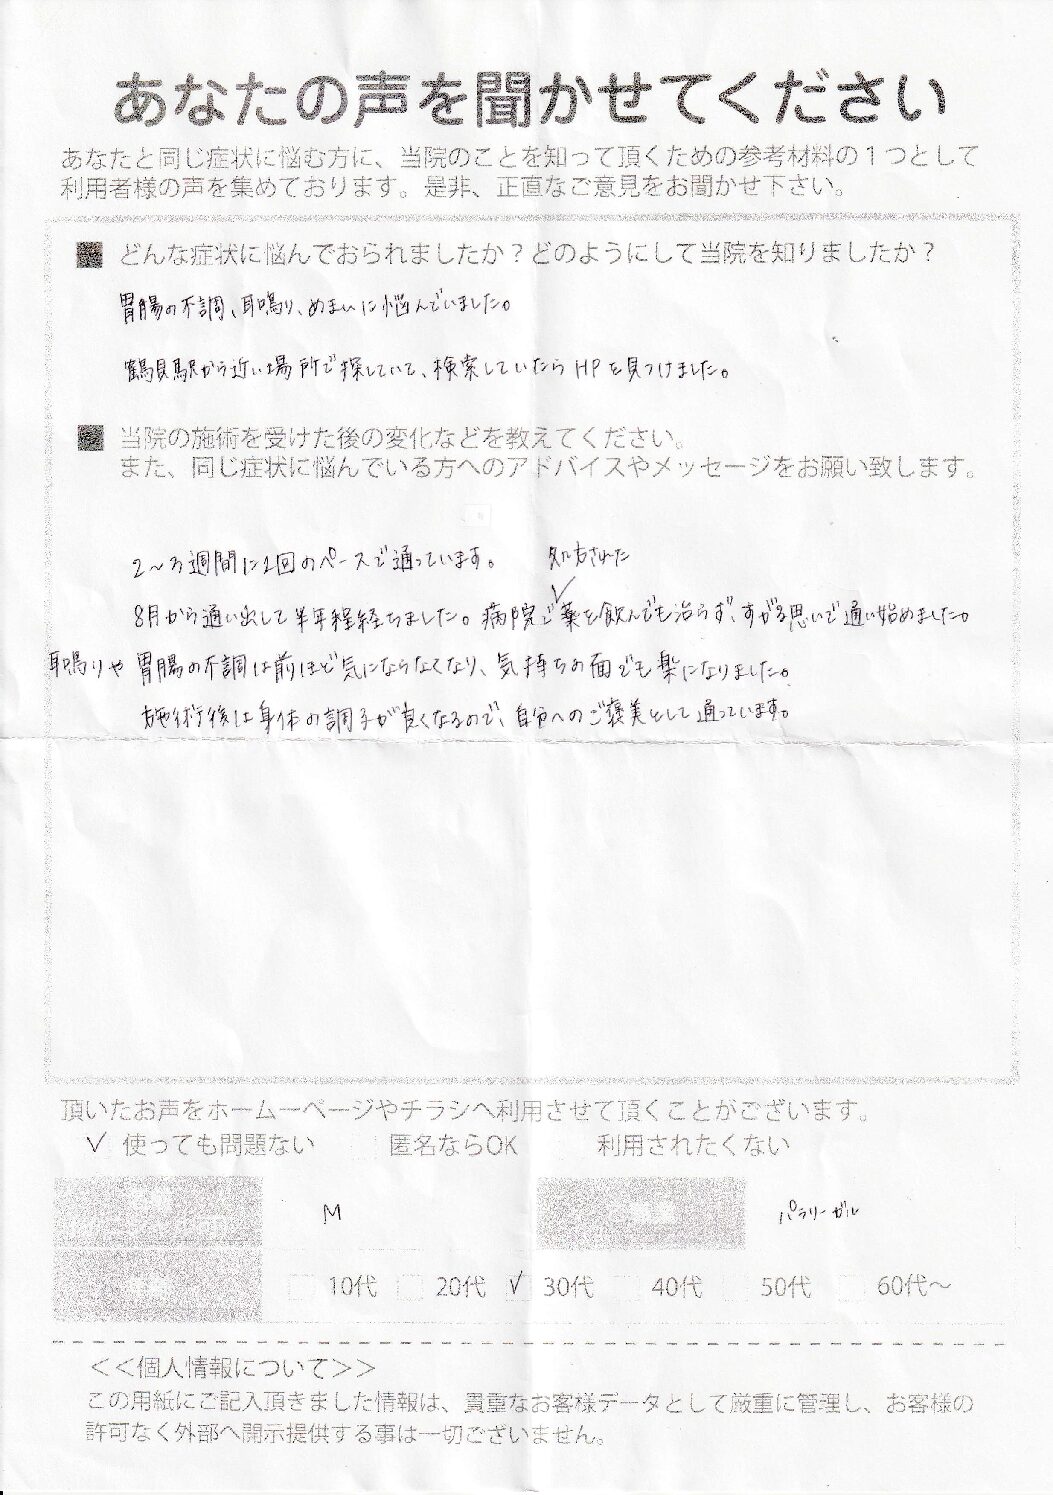 あなたの声を聞かせてください
あなたと同じ症状に悩む方に、当院のことを知って頂くための参考材料の１つとして
利用者様の声を集めております。是非、正直なご意見をお聞かせ下さい。
■ どんな症状に悩んでおられましたか？どのようにして当院を知りましたか？
胃腸の不調、耳鳴り、めまいに悩んでいました。
鶴見駅から近い場所で探していて、検索していたらHPを見つけました。
■ 当院の施術を受けた後の変化などを教えてください。
また、同じ症状に悩んでいる方へのアドバイスやメッセージをお願い致します。
2～3週間に1回のペースで通っています。
処方された
8月から通い出して半年程経ちました。病院で✓薬を飲んでも治らず、すがる思いで通い始めました。
耳鳴りや胃腸の不調は前ほど気にならなくなり、気持ちの面でも楽になりました。
施術後は身体の調子が良くなるので、自分へのご褒美として通っています。
頂いたお声をホームーページやチラシへ利用させて頂くことがございます。
✓ 使っても問題ない 匿名ならOK 利用されたくない
M パラリーガル
10代 20代 ✓ 30代 40代 50代 60代～
＜＜個人情報について＞＞
この用紙にご記入頂きました情報は、貴重なお客様データとして厳重に管理し、お客様の
許可なく外部へ開示提供する事は一切ございません。